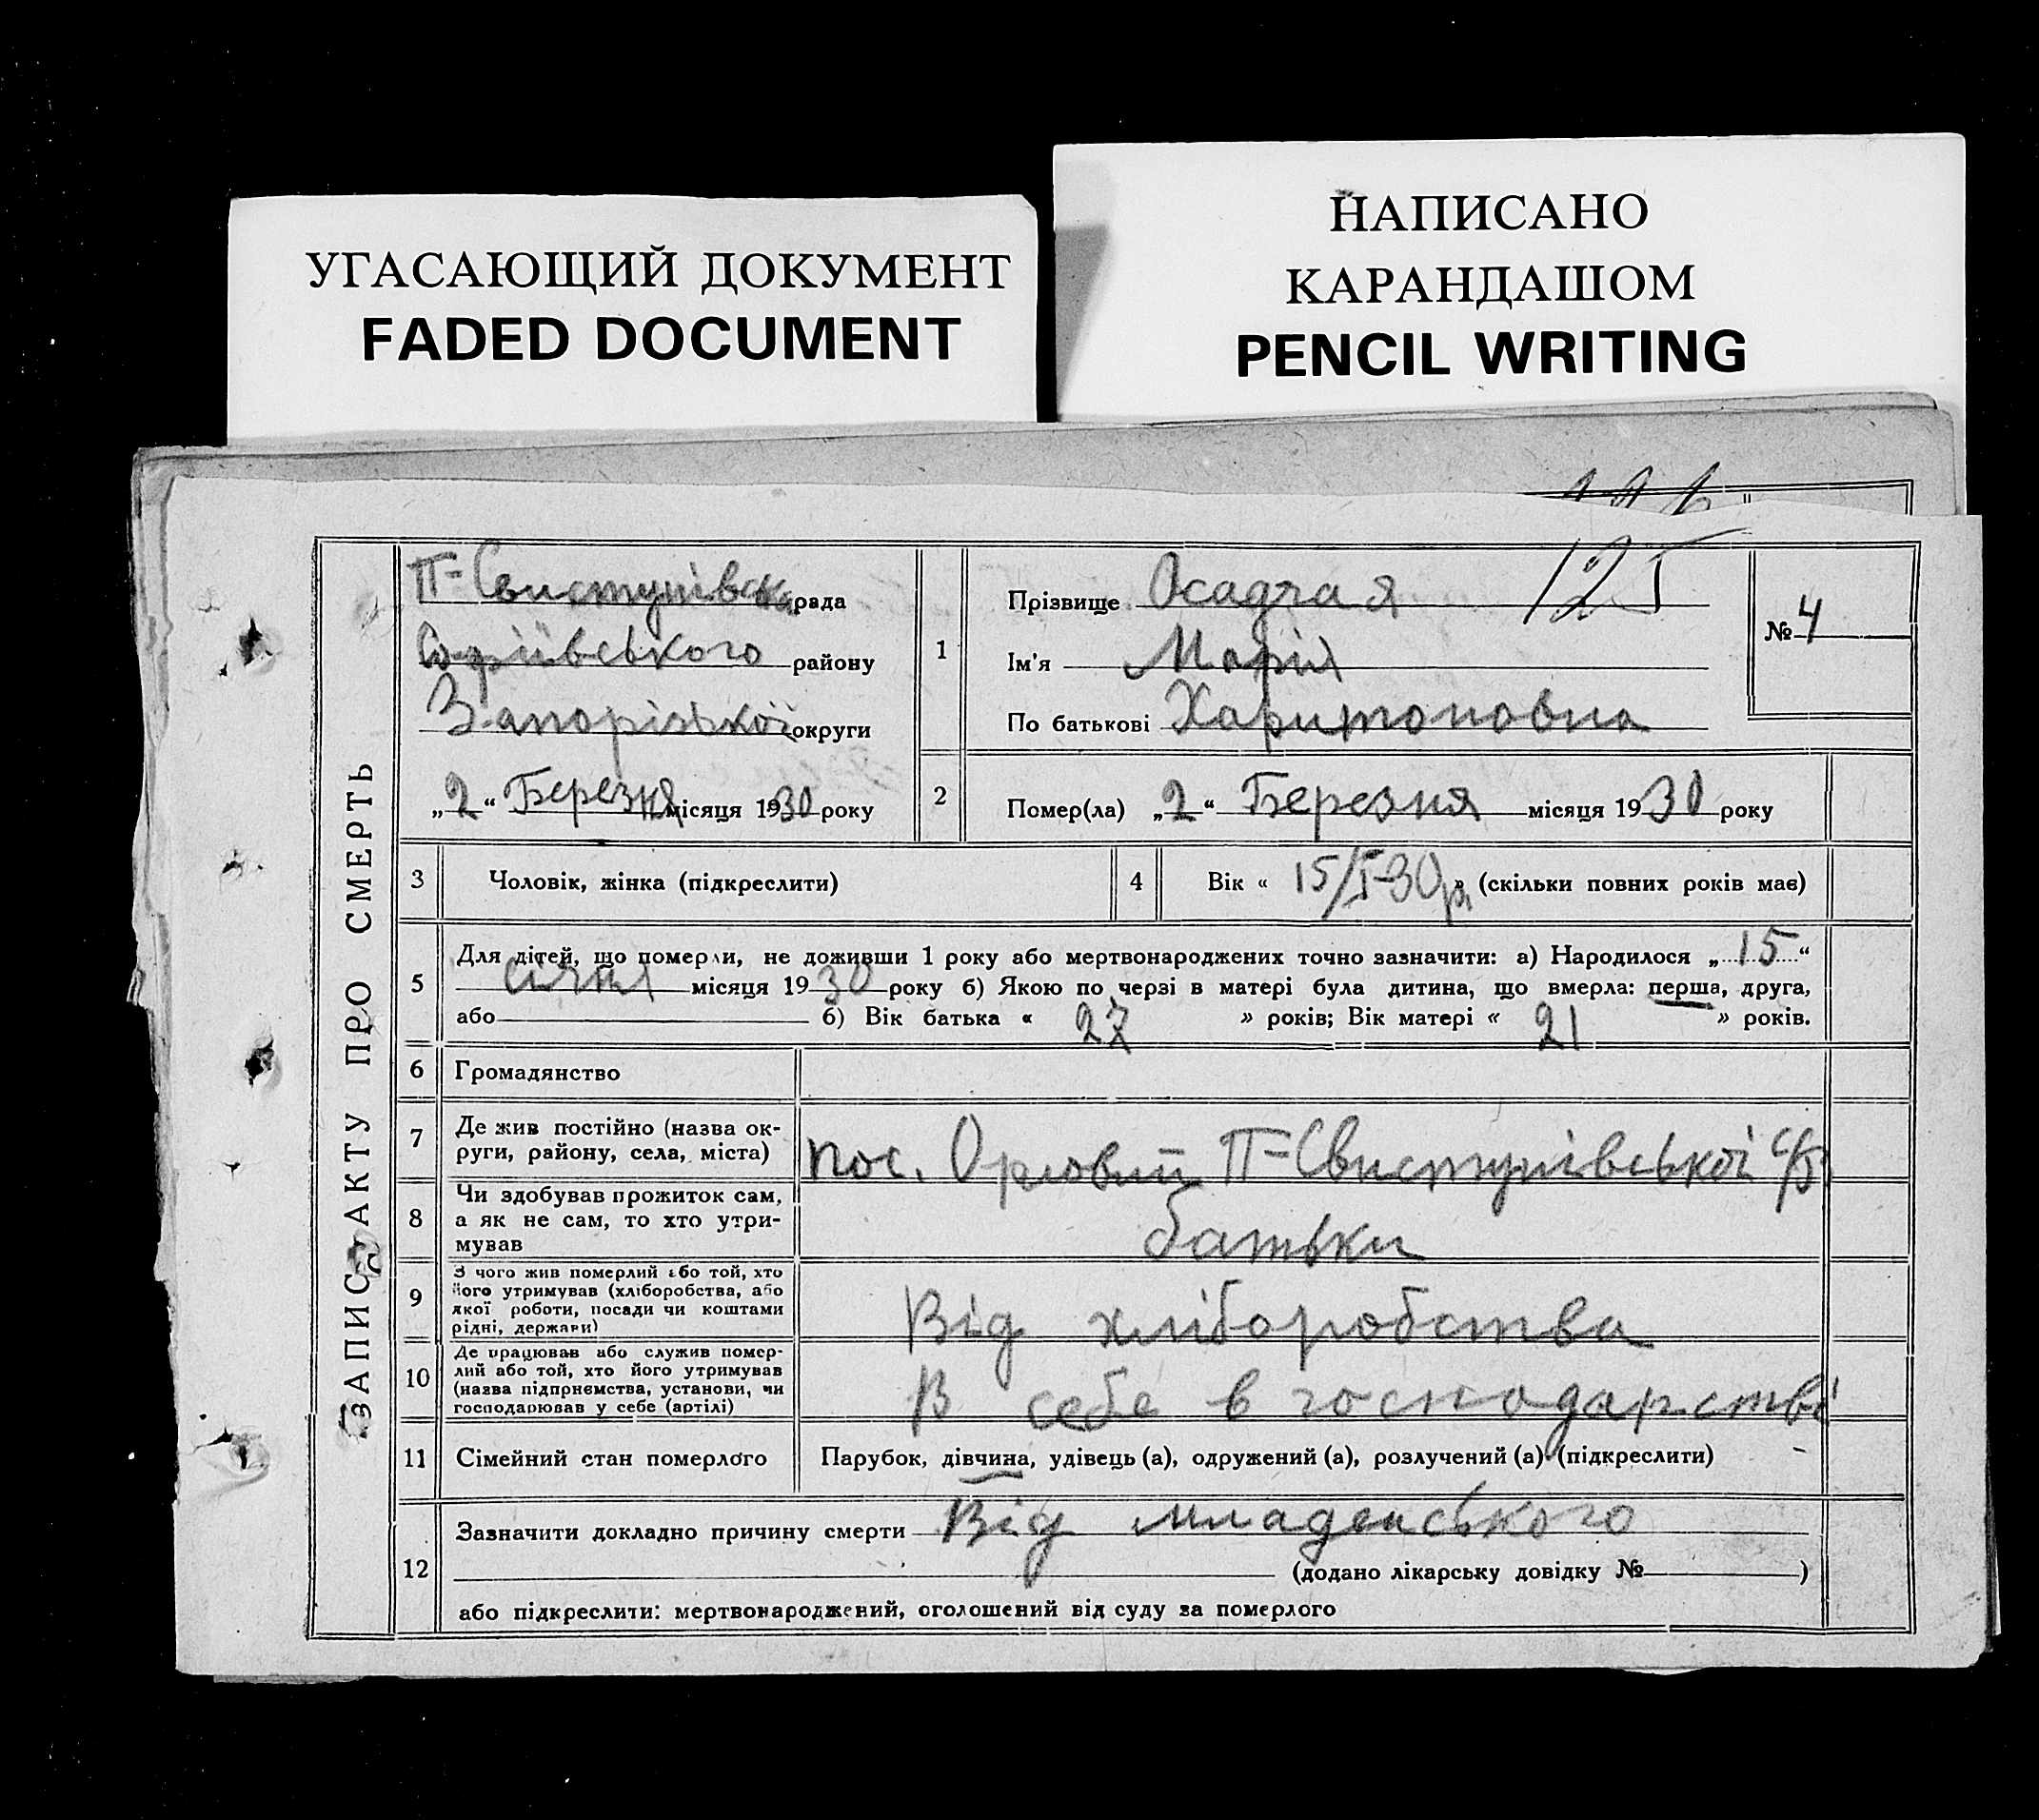 УГАСАЮЩИЙ ДОКУМЕНТ
FADED DOCUMENT
НАПИСАНО
КАРАНДАШОМ
PENCIL WRITING
ЗАПИС АКТУ ПРО СМЕРТЬ
П-Свистунівська рада
Софіївського району
Запорізької округи
„2“ Березня місяця 1930 року
1
Прізвище Осадчая
125
Ім'я Марія
По батькові Харитоновна
№ 4
2
Помер(ла) „2“ Березня місяця 1930 року
3
Чоловік, жінка (підкреслити)
4
Вік « 15/I-30р » (скільки повних років має)
5
Для дітей, що померли, не доживши 1 року або мертвонароджених точно зазначити: а) Народилося „15“
січня місяця 1930 року б) Якою по черзі в матері була дитина, що вмерла: перша, друга,
або б) Вік батька « 27 » років; Вік матері « 21 » років.
6
Громадянство
7
Де жив постійно (назва ок-
руги, району, села, міста)
пос. Орловий П-Свистунівської с/р
8
Чи здобував прожиток сам,
а як не сам, то хто утри-
мував
батьки
9
З чого жив померлий або той, хто
його утримував (хліборобства, або
якої роботи, посади чи коштами
рідні, держави)
Від хліборобства
10
Де працював або служив помер-
лий або той, хто його утримував
(назва підприємства, установи, чи
господарював у себе (артілі)
В себе в господарстві
11
Сімейний стан померлого
Парубок, дівчина, удівець (а), одружений (а), розлучений (а) (підкреслити)
12
Зазначити докладно причину смерти Від младенського
(додано лікарську довідку № )
або підкреслити: мертвонароджений, оголошений від суду за померлого